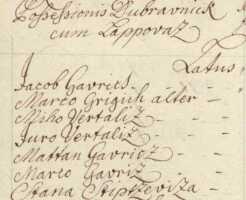 Possessionis Dubravnick
cum Lappovaz
Latus
Jacob Gavrics
Marco Grigich alter
Miho Vertaliz
Juro Vertaliz
Mattan Gavricz
Marco Gavriz
Stana